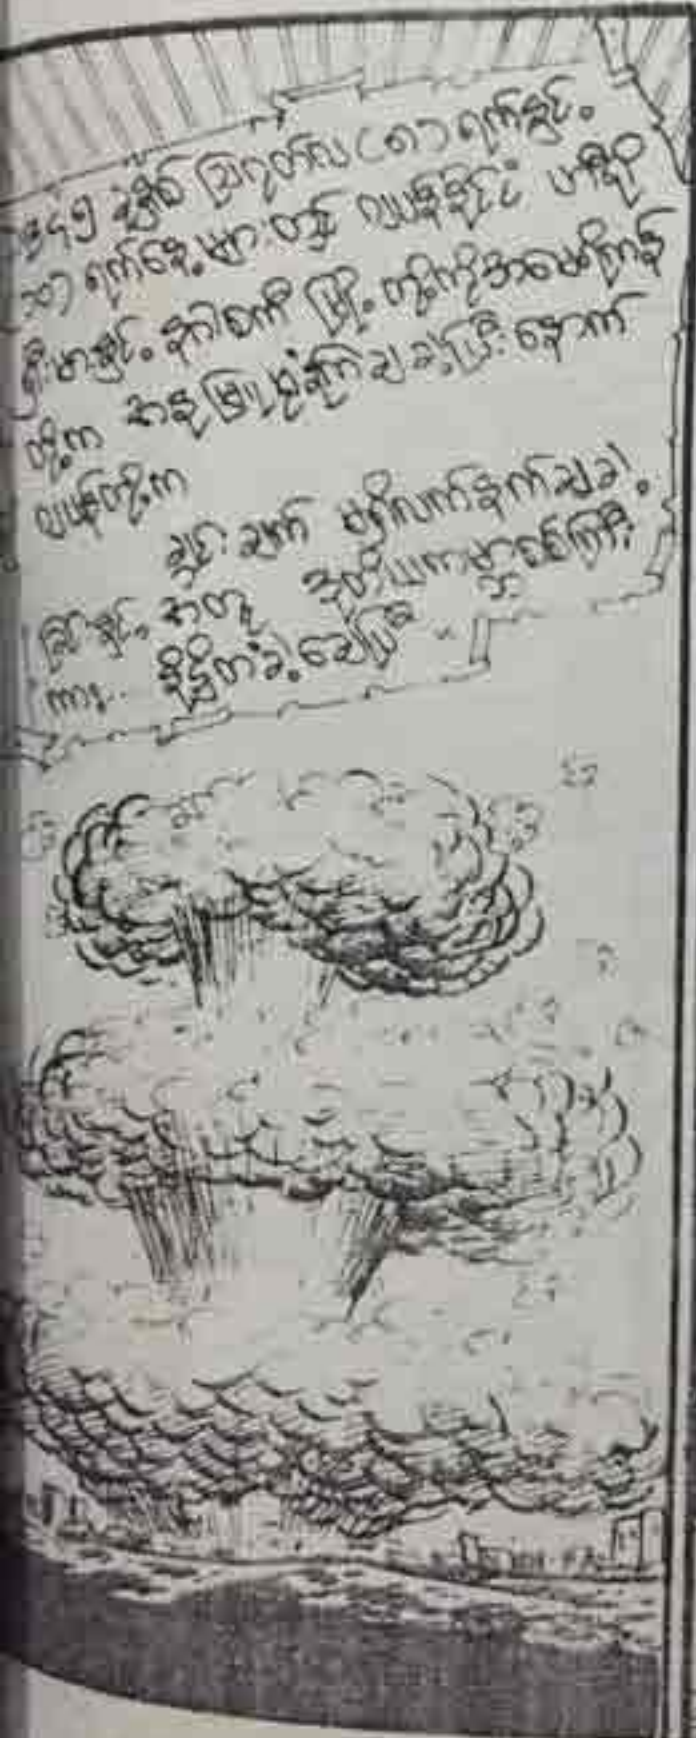 ၁၉၄၅ ခုနှစ် ဩဂုတ်လ (၆) ရက်နှင့်
(၁၀) ရက်နေ့များတွင် ဂျပန်နိုင်ငံ ဟီရို
ရှီးမားနှင့် နာဂါစကီ မြို့တို့ကိုအမေရိကန်
တို့က အနုမြူဗုံးကြဲချခဲ့ပြီးနောက်
ဂျပန်တို့က
ချွင်းချက် မရှိလက်နက်ချခဲ့
ခြင်းနှင့်အတူ ဒုတိယကမ္ဘာစစ်ကြီး
ကား.. ပြီးခဲ့ချေပြီ